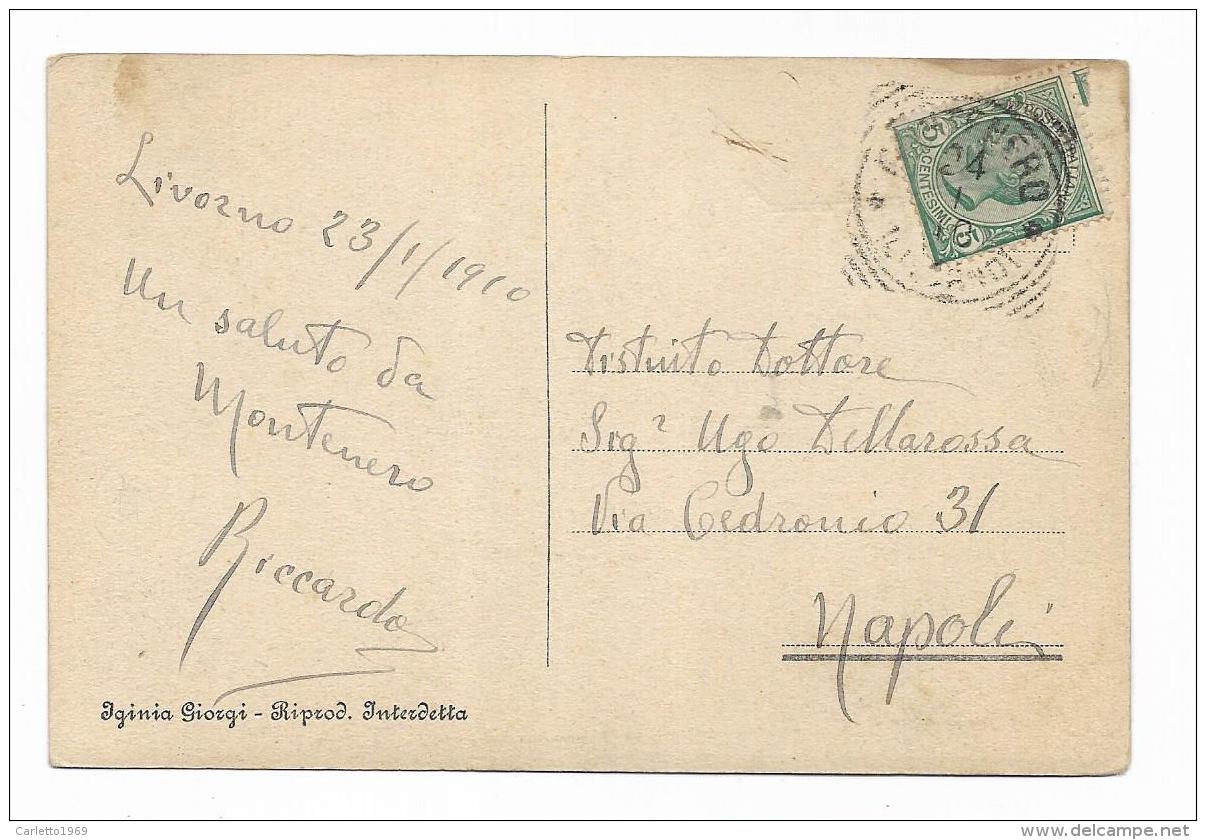 Livorno 23/1/1910
Un saluto da
Montenero
Riccardo
Iginia Giorgi - Riprod. Interdetta
POSTE ITALIANE
5 CENTESIMI 5
NERO
Distinto Dottore
Sigr Ugo Dellarossa
Via Cedronio 31
Napoli
Carletto1969
delcampe.net